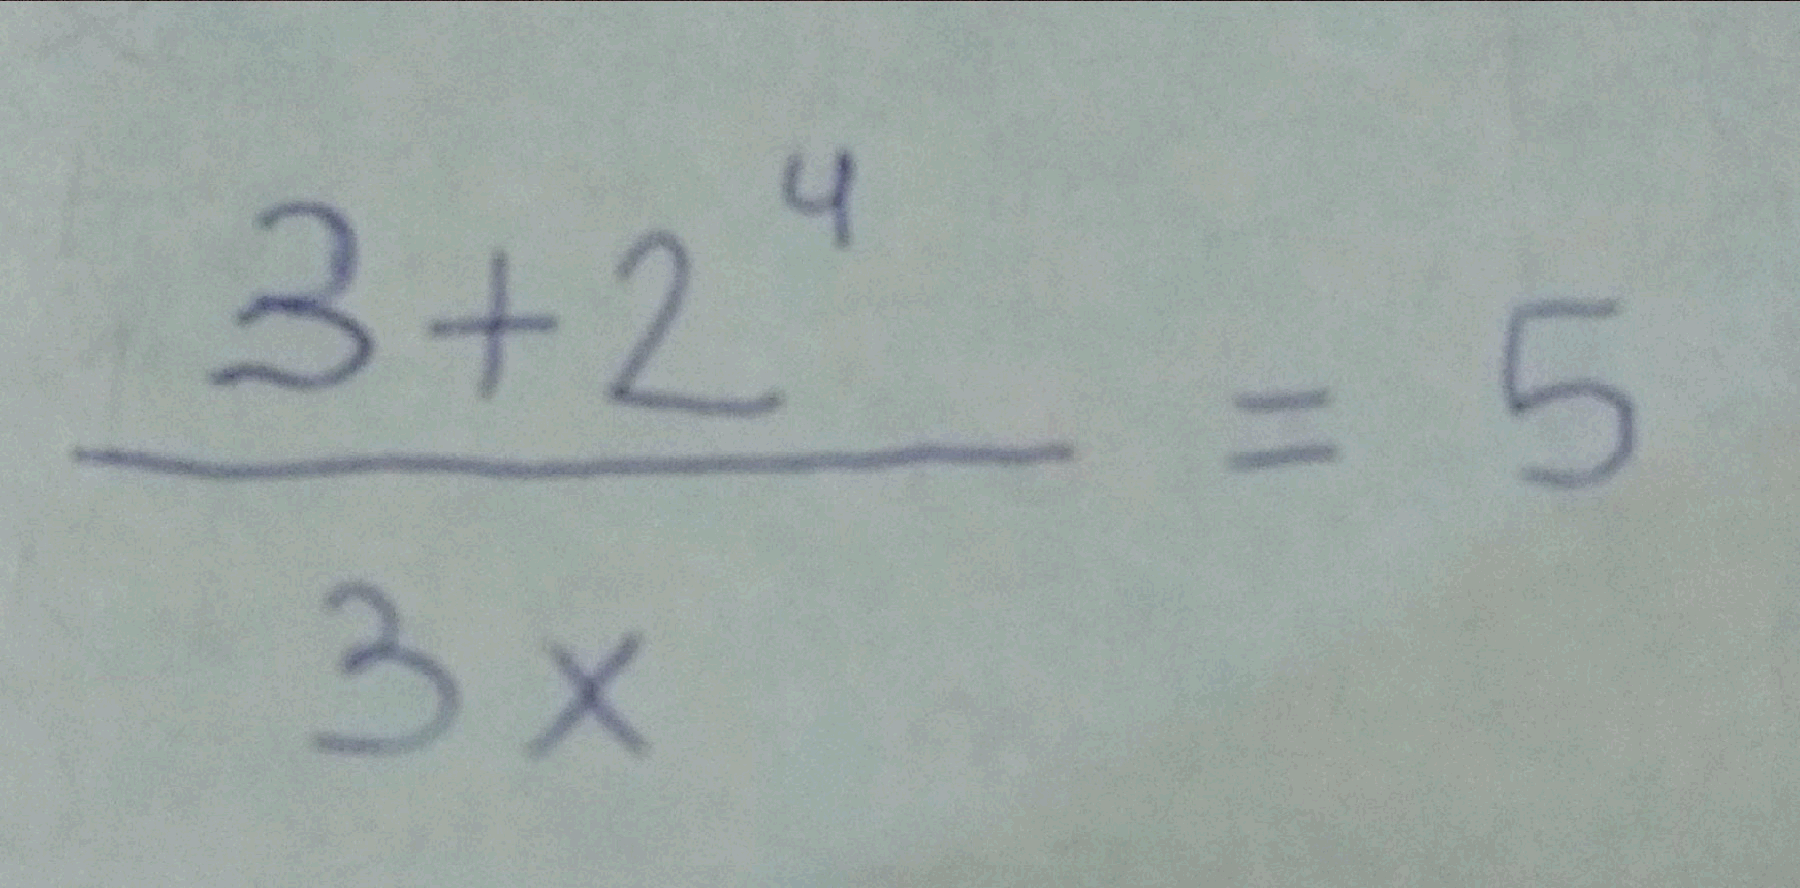 3+2⁴
/ 3x = 5